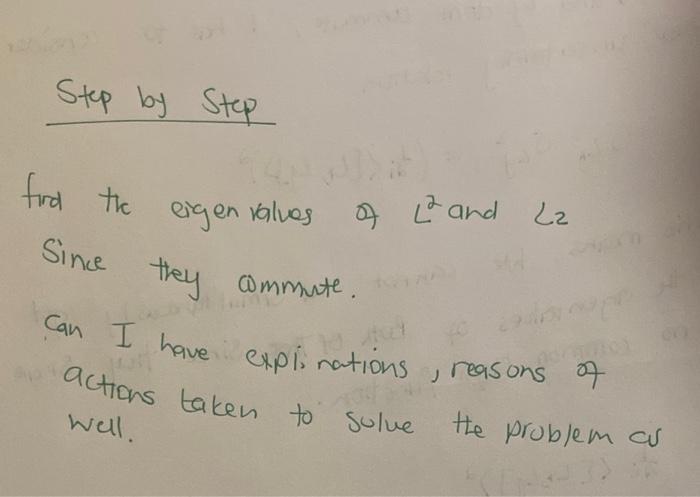 Step by Step
find the eigen values of L² and Lz
Since they commute.
Can I have explinations, reasons of
actions taken to solve the problem as
well.